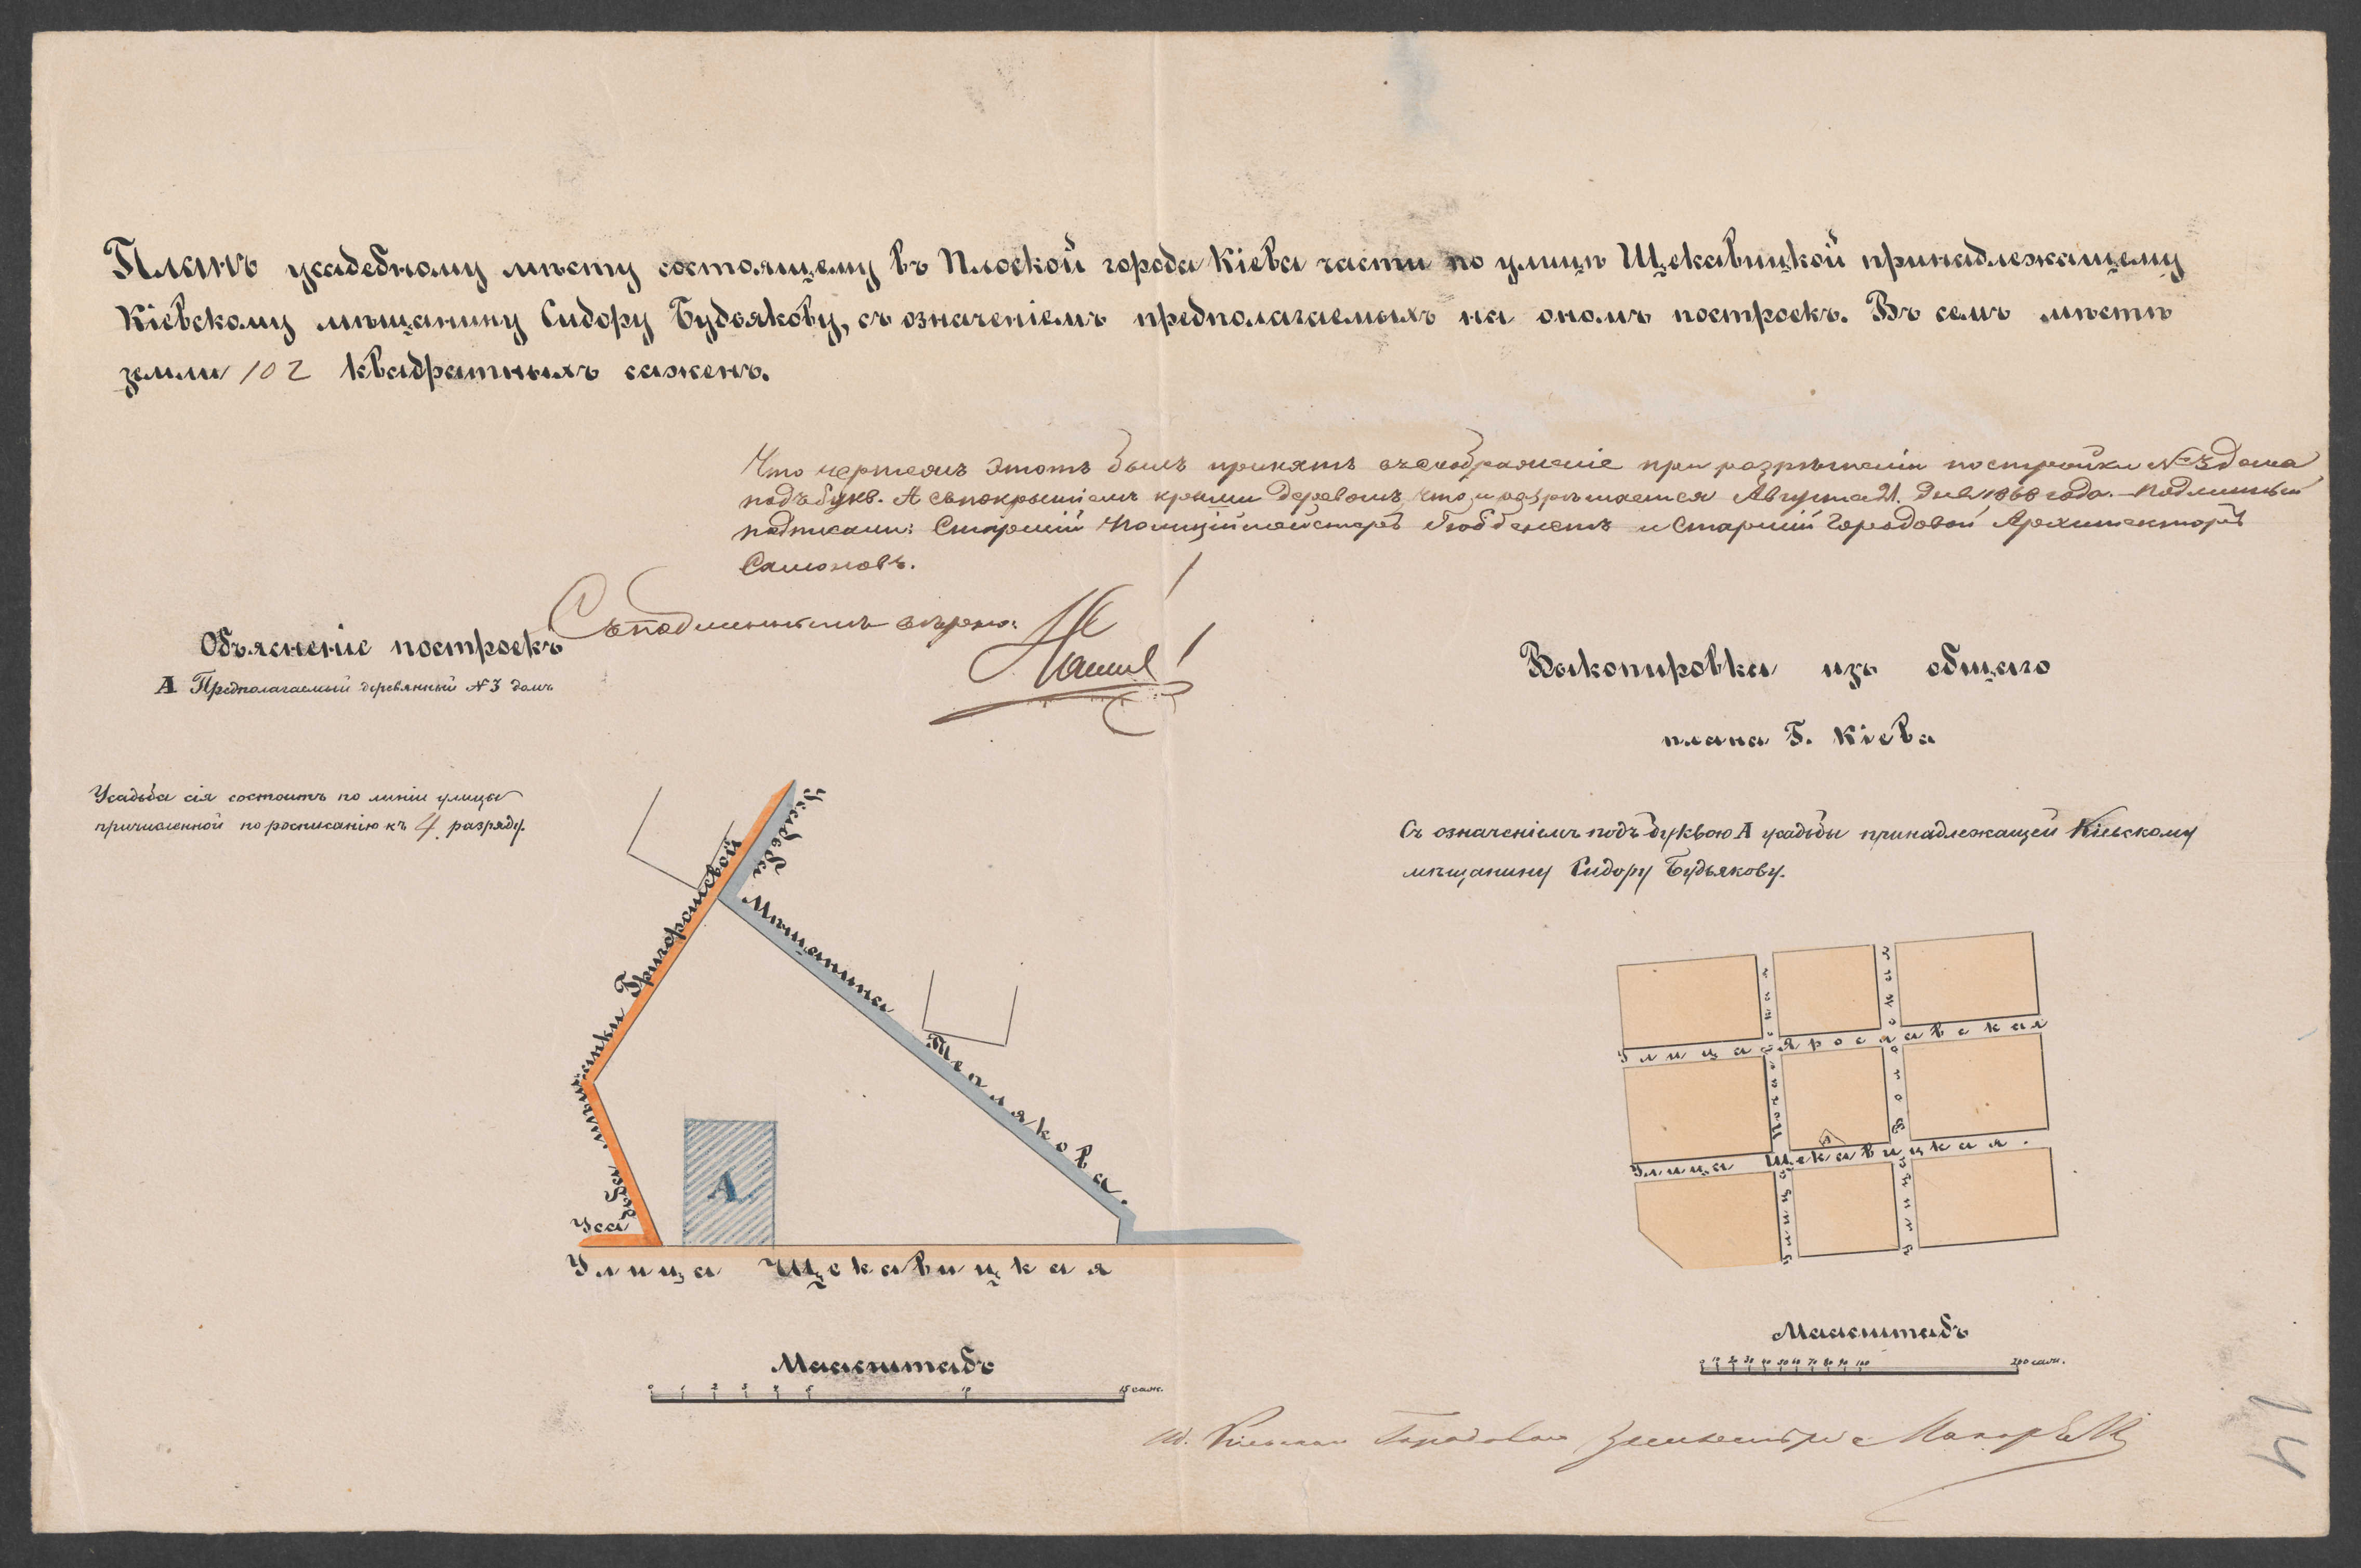 Планъ усадебному мѣсту состоящему въ Плоской города Кіева части по улицѣ Щекавицкой принадлежащему
Кіевскому мѣщанину Сидору Будьякову, съ означеніемъ предполагаемыхъ на ономъ построекъ. Въ семъ мѣстѣ
земли 102 квадратныхъ сажень.
Что чертежъ этотъ былъ принятъ въ соображеніе при разрѣшеніи постройки №3 дома
подъ букв. А съ покрытіемъ крыши деревомъ, что и разрѣшается Августа 21 дня 1868 года. – Подлинный
подписали: Старшій Полиціймейстеръ и Старшій Городовой Архитекторъ
Самоновъ.
Съ подлиннымъ вѣрно:
Объясненіе построекъ
А Предполагаемый деревянный №3 домъ
Усадьба сія состоитъ по линіи улицы
причисленной по росписанію къ 4. разряду.
Выкопировка изъ общаго
плана Г. Кіева
Съ означеніемъ подъ буквою А усадьбы принадлежащей Кіевскому
мѣщанину Сидору Будьякову.
Усадьба мѣщанки Григоровичевой
Усадьба
Мѣщанина
А
Улица Щекавицкая
Масштабъ
0 1 2 3 4 5 10 15 саж.
Улица Ярославская
Улица Щекавицкая.
А
Улица
Улица
Масштабъ
0 10 20 30 40 50 60 70 80 90 100 200 саж.
Кіевскій Городовой Землемѣръ
14